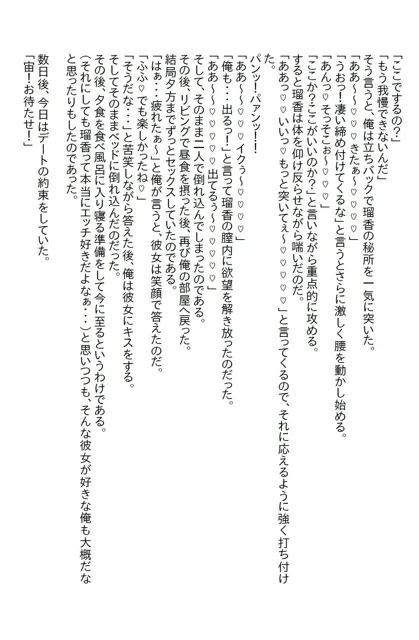 「ここでするの？」
「もう我慢できないんだ」
そう言うと、俺は立ちバックで瑠香の秘所を一気に突いた。
「ああ～～♡♡♡♡きたぁ～♡♡♡」
「うおっ！凄い締め付けてくるな」と言うとさらに激しく腰を動かし始める。
「あんっ♡そっそこぉ～♡♡♡」
「ここか？ここがいいのか？」と言いながら重点的に攻める。
すると瑠香は体を仰け反らせながら喘いだのだ。
「ああっ♡♡いいっ♡もっと突いてぇ～♡♡♡♡」と言ってくるので、それに応えるように強く打ち付け
た。
パンッ！パァンッ！！
「ああ～～♡♡♡♡イクぅ～♡♡♡♡」
「俺も・・・出るっ！」と言って瑠香の膣内に欲望を解き放ったのだった。
「ああ～～♡♡♡♡♡出てるぅ～♡♡♡♡」
そして、そのまま二人で倒れ込んでしまったのである。
その後、リビングで昼食を摂った後、再び俺の部屋へ戻った。
結局夕方までずっとセックスしていたのである。
「はぁ・・・疲れたぁ～」と俺が言うと、彼女は笑顔で答えたのだ。
「ふふ♡でも楽しかったね♡」
「そうだな・・・」と苦笑しながら答えた後、俺は彼女にキスをする。
そしてそのままベッドに倒れ込んだのだった。
その後、夕食を食べ風呂に入り寝る準備をして今に至るというわけである。
（それにしても瑠香って本当にエッチ好きだよなぁ・・・）と思いつつも、そんな彼女が好きな俺も大概だな
と思ったりもしたのであった。
数日後、今日はデートの約束をしていた。
「宙！お待たせ！」